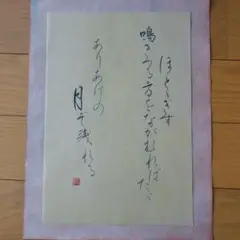 ほととぎす
鳴きつる方をながむればただ
ありあけの
月ぞ残れる